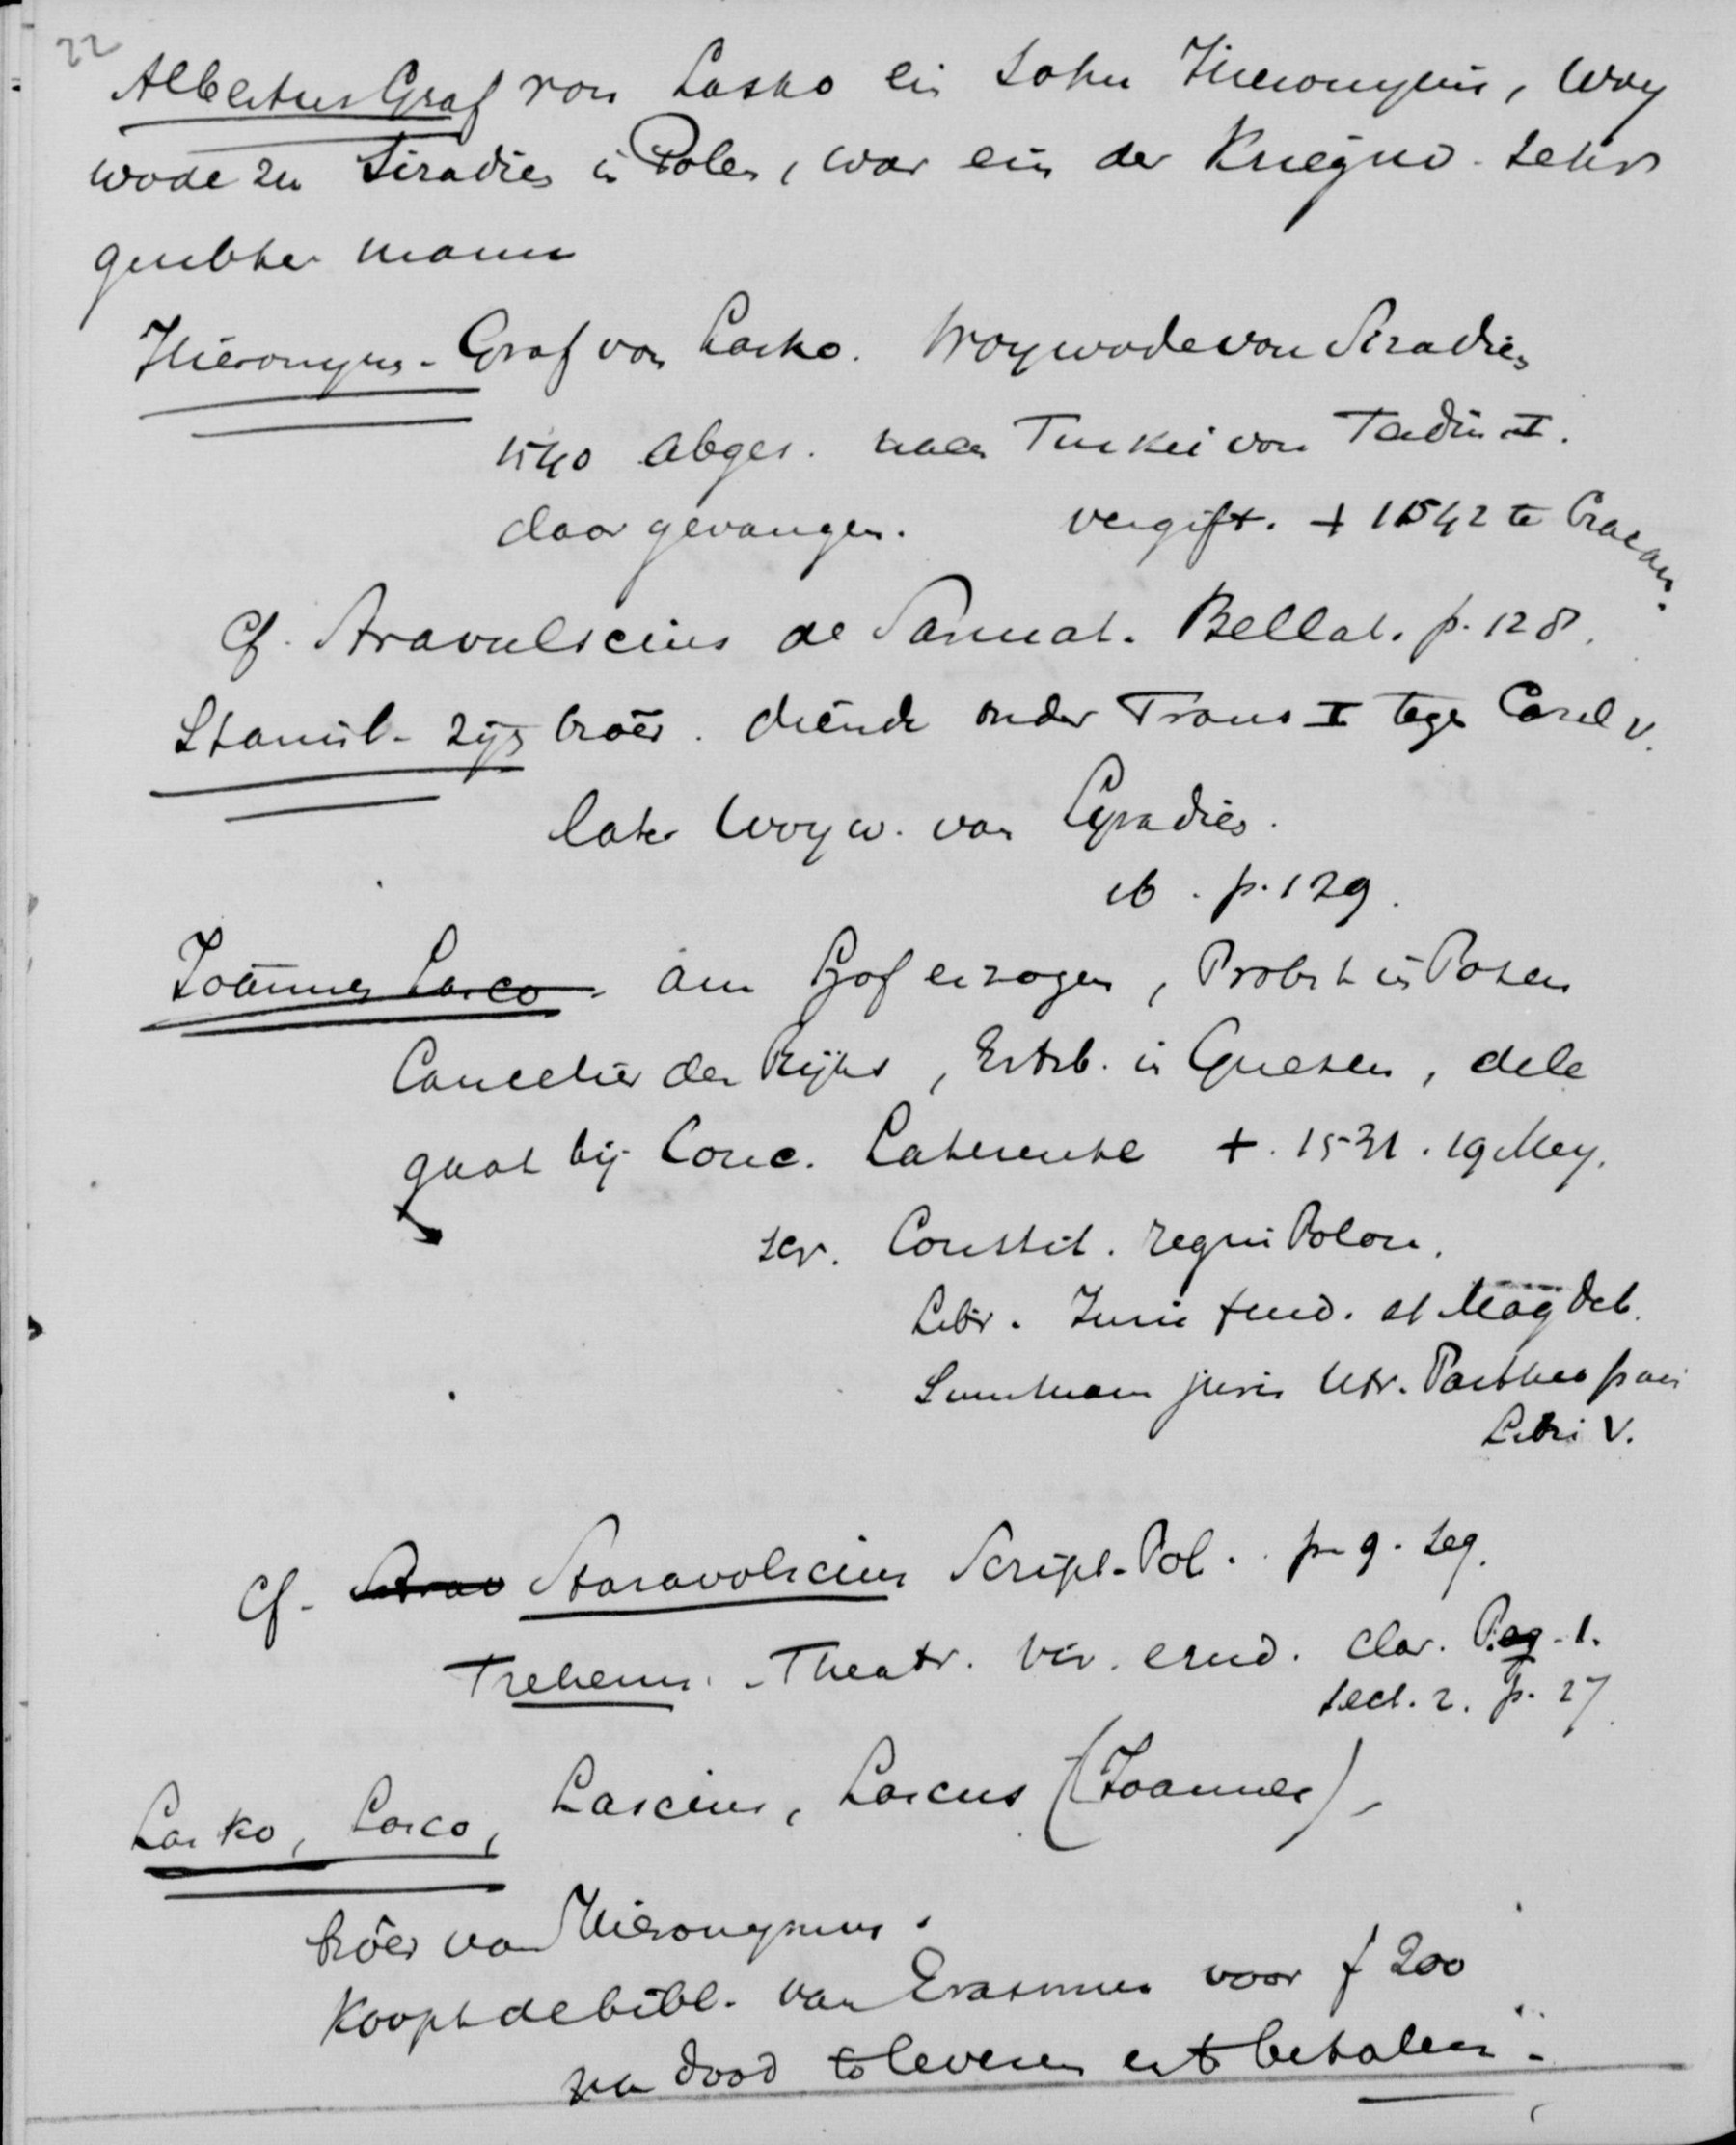 22
Albertus Graf von Lasko ein Sohn Hieronymus, Woy
wode zu Siradien in Polen, war ein der Kriegno. sehr
geubter mann
Hieronymus - Graf von Lasko. Woywode von Siradien
1540 abges. naar Turkei von Ferdin I.
daar gevangen. vergift. + 1542 te Cracau.
Cf. Stravolscius de Sarmat. Bellat. p. 128.
Stanisl. zijn broer. diende onder Frans I tegen Carel V.
later Woyw. van Syradien.
ib. p. 129.
Joannes Lasco. am Hof erzogen, Probst in Posen
Cancelier des Rijks, Ertsb. in Gnesen, dele
gaat bij Conc. Laterense +. 1531. 19 Mey.
scr. Constit. regni Polon.
Libr. Juris feud. et Magdeb.
Summam juris Utr. Parthenopaei
Libri V.
Cf. Strav Staravolscius Script. Pol. p. 9. seq.
Treherus. - Theatr. Vir. erud. clar. Pag. 1.
sect. 2. p. 27.
Lasko, Lasco, Lascius, Lascus (Joannes),
broer van Hieronymus.
Koopt de bibl. van Erasmus voor f 200
na dood te leveren en te betalen.